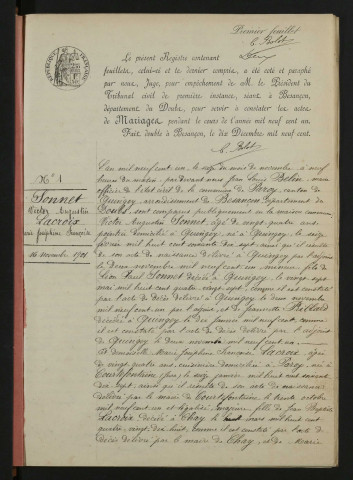 Premier feuillet
C. Belot
RÉPUBLIQUE FRANÇAISE
Le présent Registre contenant
feuillets, celui-ci et le dernier compris, a été coté et paraphé
par nous, Juge, pour empêchement de M. le Président du
Tribunal civil de première instance, séant à Besançon,
département du Doubs, pour servir à constater les actes
de Mariages pendant le cours de l'année mil neuf cent un.
Fait double à Besançon, le dix Décembre mil neuf cent.
C. Belot
N° 1
Sonnet
Victor Augustin
Lacroix
Marie Joséphine Françoise
16 novembre 1901
L'an mil neuf cent un, le seize du mois de novembre à neuf
heures du matin, par devant nous Jean Louis
officier de l'état civil de la commune de Paroy, canton de
Quingey, arrondissement de Besançon, Département du
Doubs, sont comparus publiquement en la maison commune
Victor Augustin Sonnet, âgé de quarante ans
domicilié à Quingey, né à Quingey, le
mil huit cent soixante ainsi qu'il résulte
de son acte de naissance délivré à Quingey par l'adjoint
le deux novembre mil neuf cent un, majeur, fils de
Léon Paul Sonnet décédé à Quingey, le vingt sept
mai mil huit cent quatre vingt sept, comme il est constaté
par l'acte de décès délivré à Quingey le deux novembre
mil neuf cent un par l'adjoint, et de Jeannette
décédée à Quingey le dix janvier mil neuf cent, comme
il est constaté par l'acte de décès délivré par l'adjoint
de Quingey le deux novembre mil neuf cent un.
Et Demoiselle Marie Joséphine Françoise Lacroix, âgée
de vingt quatre ans, domiciliée à Paroy, née à
Courtefontaine, le onze mil huit cent soixante
dix sept, ainsi qu'il résulte de son acte de naissance
délivré par le maire de Courtefontaine le trente octobre
mil neuf cent un et légalisé, majeure, fille de Jean Baptiste
Lacroix décédé à Chay le mars mil huit cent
quatre vingt dix huit, comme il est constaté par l'acte de
décès délivré par le maire de Chay, et de Marie